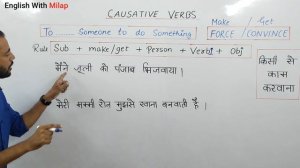 English With Milap
CAUSATIVE VERBS
To ...... Someone to do Something
Make / Get
FORCE / CONVINCE
Rule Sub + make/get + Person + Verb1 + Obj
मैंने जूली को पंजाब भिजवाया।
मेरी मम्मी रोज मुझसे खाना बनवाती है।
किसी से
काम
करवाना